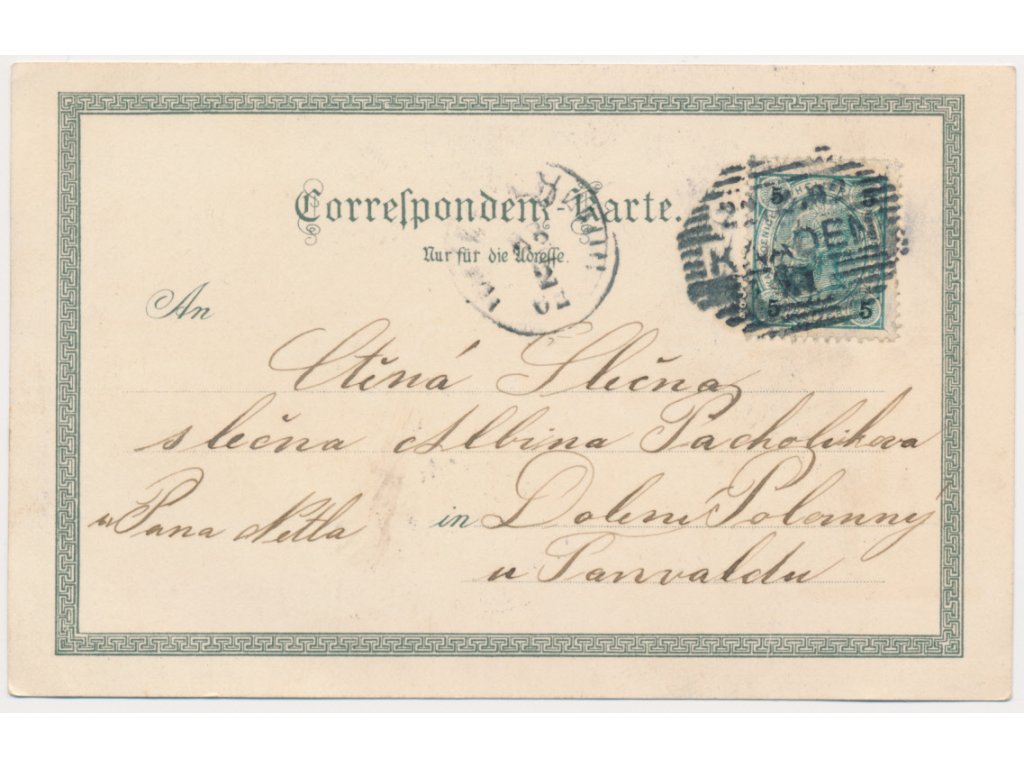 Correspondenz-Karte.
Nur für die Adresse.
5 5
KAADEN
5 5
An
Ctěná Slečna
slečna Albina Pacholikova
u Pana Nětla in Dolení Polomný
u Tanvaldu